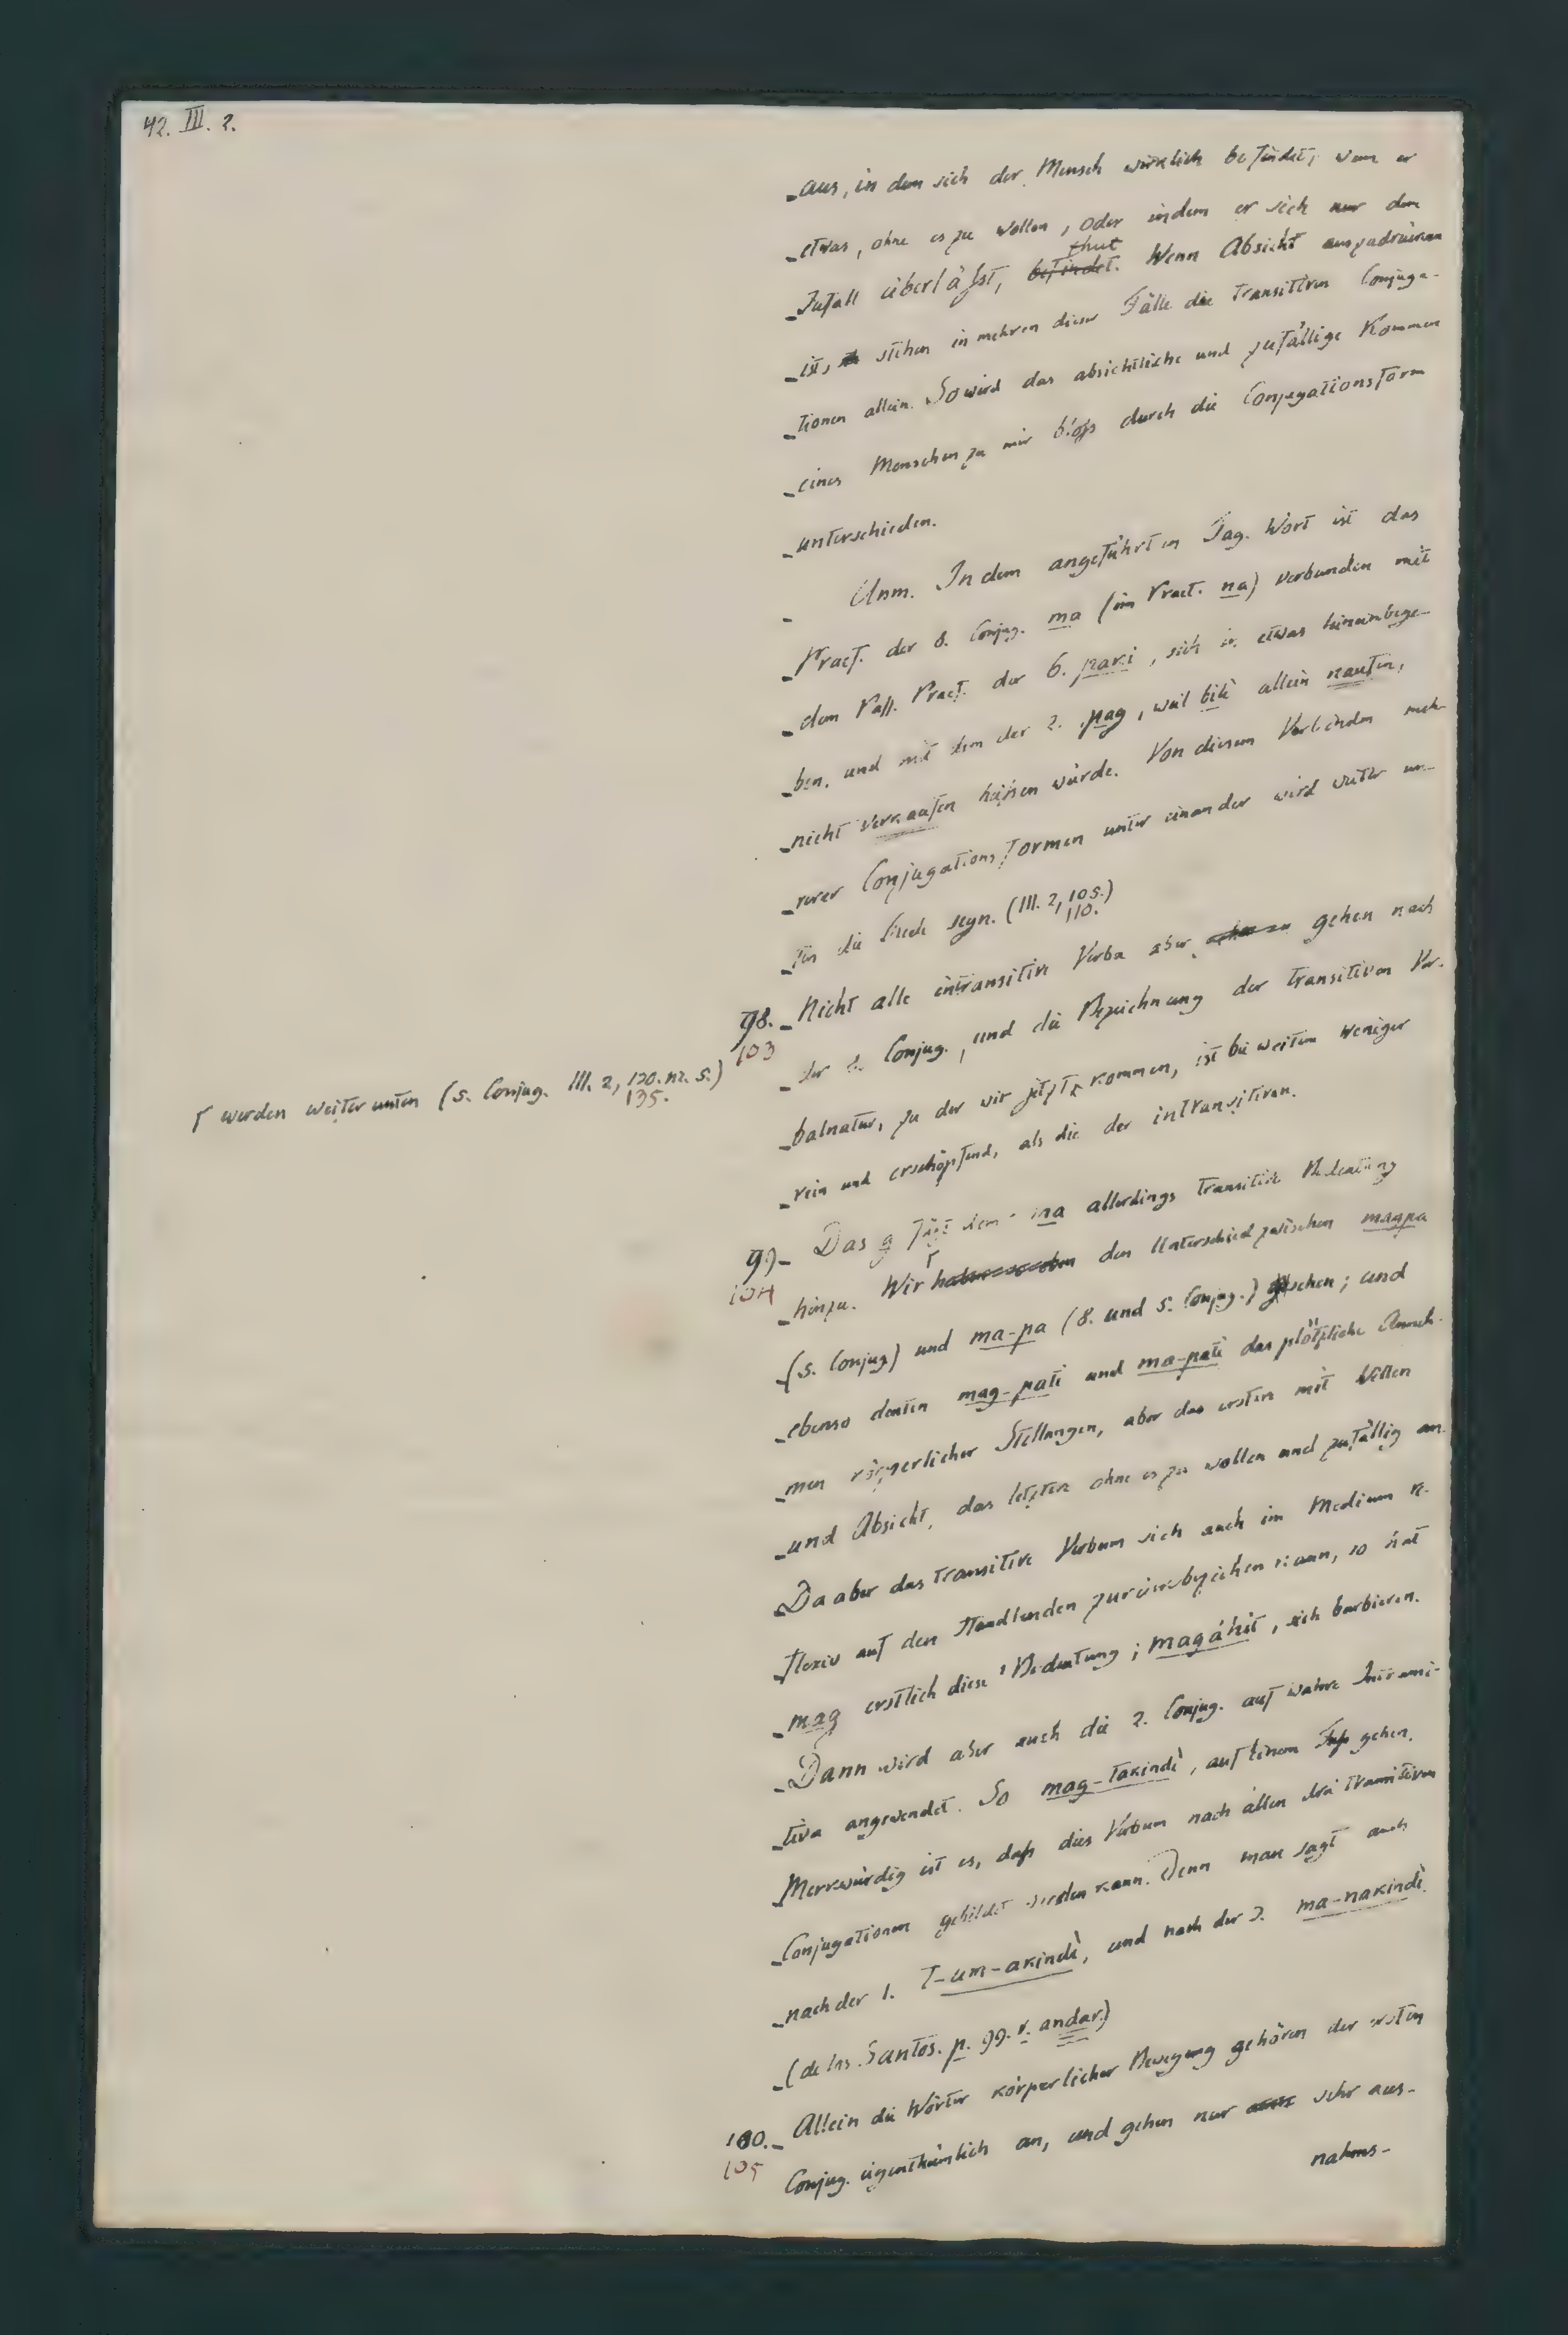 42. III. 2.
aus, in dem sich der Mensch wirklich befindet, wenn er
etwas, ohne es zu wollen, oder indem er sich nur dem
Zufall überläfst, befindet. thut Wenn Absicht auszudrücken
ist, stehen in mehren dieser Fälle die transitiven Conjuga-
tionen allein. So wird das absichtliche und zufällige Kommen
eines Menschen zu mir blofs durch die Conjugationsform
unterschieden.
Anm. In dem angeführten Tag. Wort ist das
Praef. der 8. Conjug. ma (im Praet. na) verbunden mit
dem Pass. Praef. der 6. paki, sich in etwas hineinbege-
ben, und mit dem der 2. pag, weil bili allein kaufen,
nicht verkaufen heifsen würde. Von diesem Verbinden meh-
rerer Conjugationsformen unter einander wird weiter un-
ten die Rede seyn. (III. 2, 105.)
110.
98. Nicht alle intransitive Verba aber gehen nach
103
der 8. Conjug., und die Bezeichnung der transitiven Ver-
balnatur, zu der wir jetzt kommen, ist bei weitem weniger
rein und erschöpfend, als die der intransitiven.
┌ werden weiter unten (5. Conjug. III. 2, 130. nr. 5.)
135.
99. Das g fügt dem ma allerdings transitive Bedeutung
104
hinzu. Wir haben so eben den Unterschied zwischen magpa
(5. Conjug) und ma-pa (8. und 5. Conjug.) sehen; und
ebenso deuten mag-pati und ma-pati das plötzliche Anneh-
men körperlicher Stellungen, aber das erstere mit Willen
und Absicht, das letztere ohne es zu wollen und zufällig an.
Da aber das transitive Verbum sich auch im Medium re-
flexiv auf den Handlenden zurückbeziehen kann, so hat
mag erstlich diese Bedeutung; magáhit, sich barbieren.
Dann wird aber auch die 2. Conjug. auf wahre Intransi-
tiva angewendet. So mag-takindì, auf einem Fufs gehen.
Merkwürdig ist es, dafs dies Verbum nach allen drei transitiven
Conjugationen gebildet werden kann. Denn man sagt auch
nach der 1. T-um-akindì, und nach der 3. ma-nakindì.
(de los Santos. p. 99. v. andar.)
100. Allein die Wörter körperlicher Bewegung gehören der ersten
105
Conjug. eigenthümlich an, und gehen nur sehr aus-
nahms-